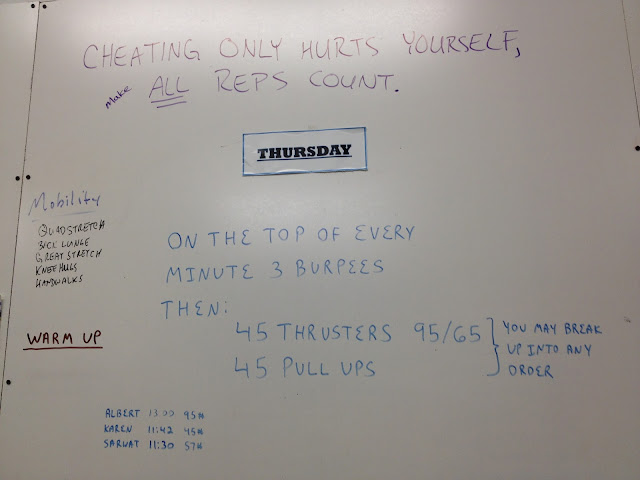 CHEATING ONLY HURTS YOURSELF,
Make ALL REPS COUNT.
THURSDAY
Mobility
QUAD STRETCH
BACK LUNGE
GREAT STRETCH
KNEE HUGS
HANDWALKS
WARM UP
ON THE TOP OF EVERY
MINUTE 3 BURPEES
THEN:
45 THRUSTERS 95/65
45 PULL UPS
YOU MAY BREAK
UP INTO ANY
ORDER
ALBERT 13:00 95#
KAREN 11:42 45#
SARWAT 11:30 57#